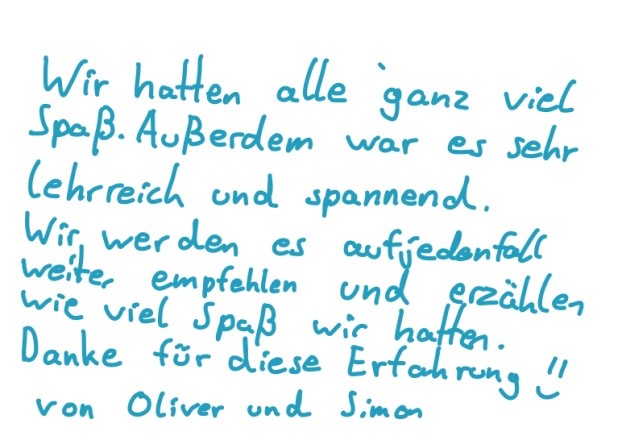 Wir hatten alle ganz viel
Spaß. Außerdem war es sehr
lehrreich und spannend.
Wir werden es aufjedenfall
weiter empfehlen und erzählen
wie viel Spaß wir hatten.
Danke für diese Erfahrung
von Oliver und Simon